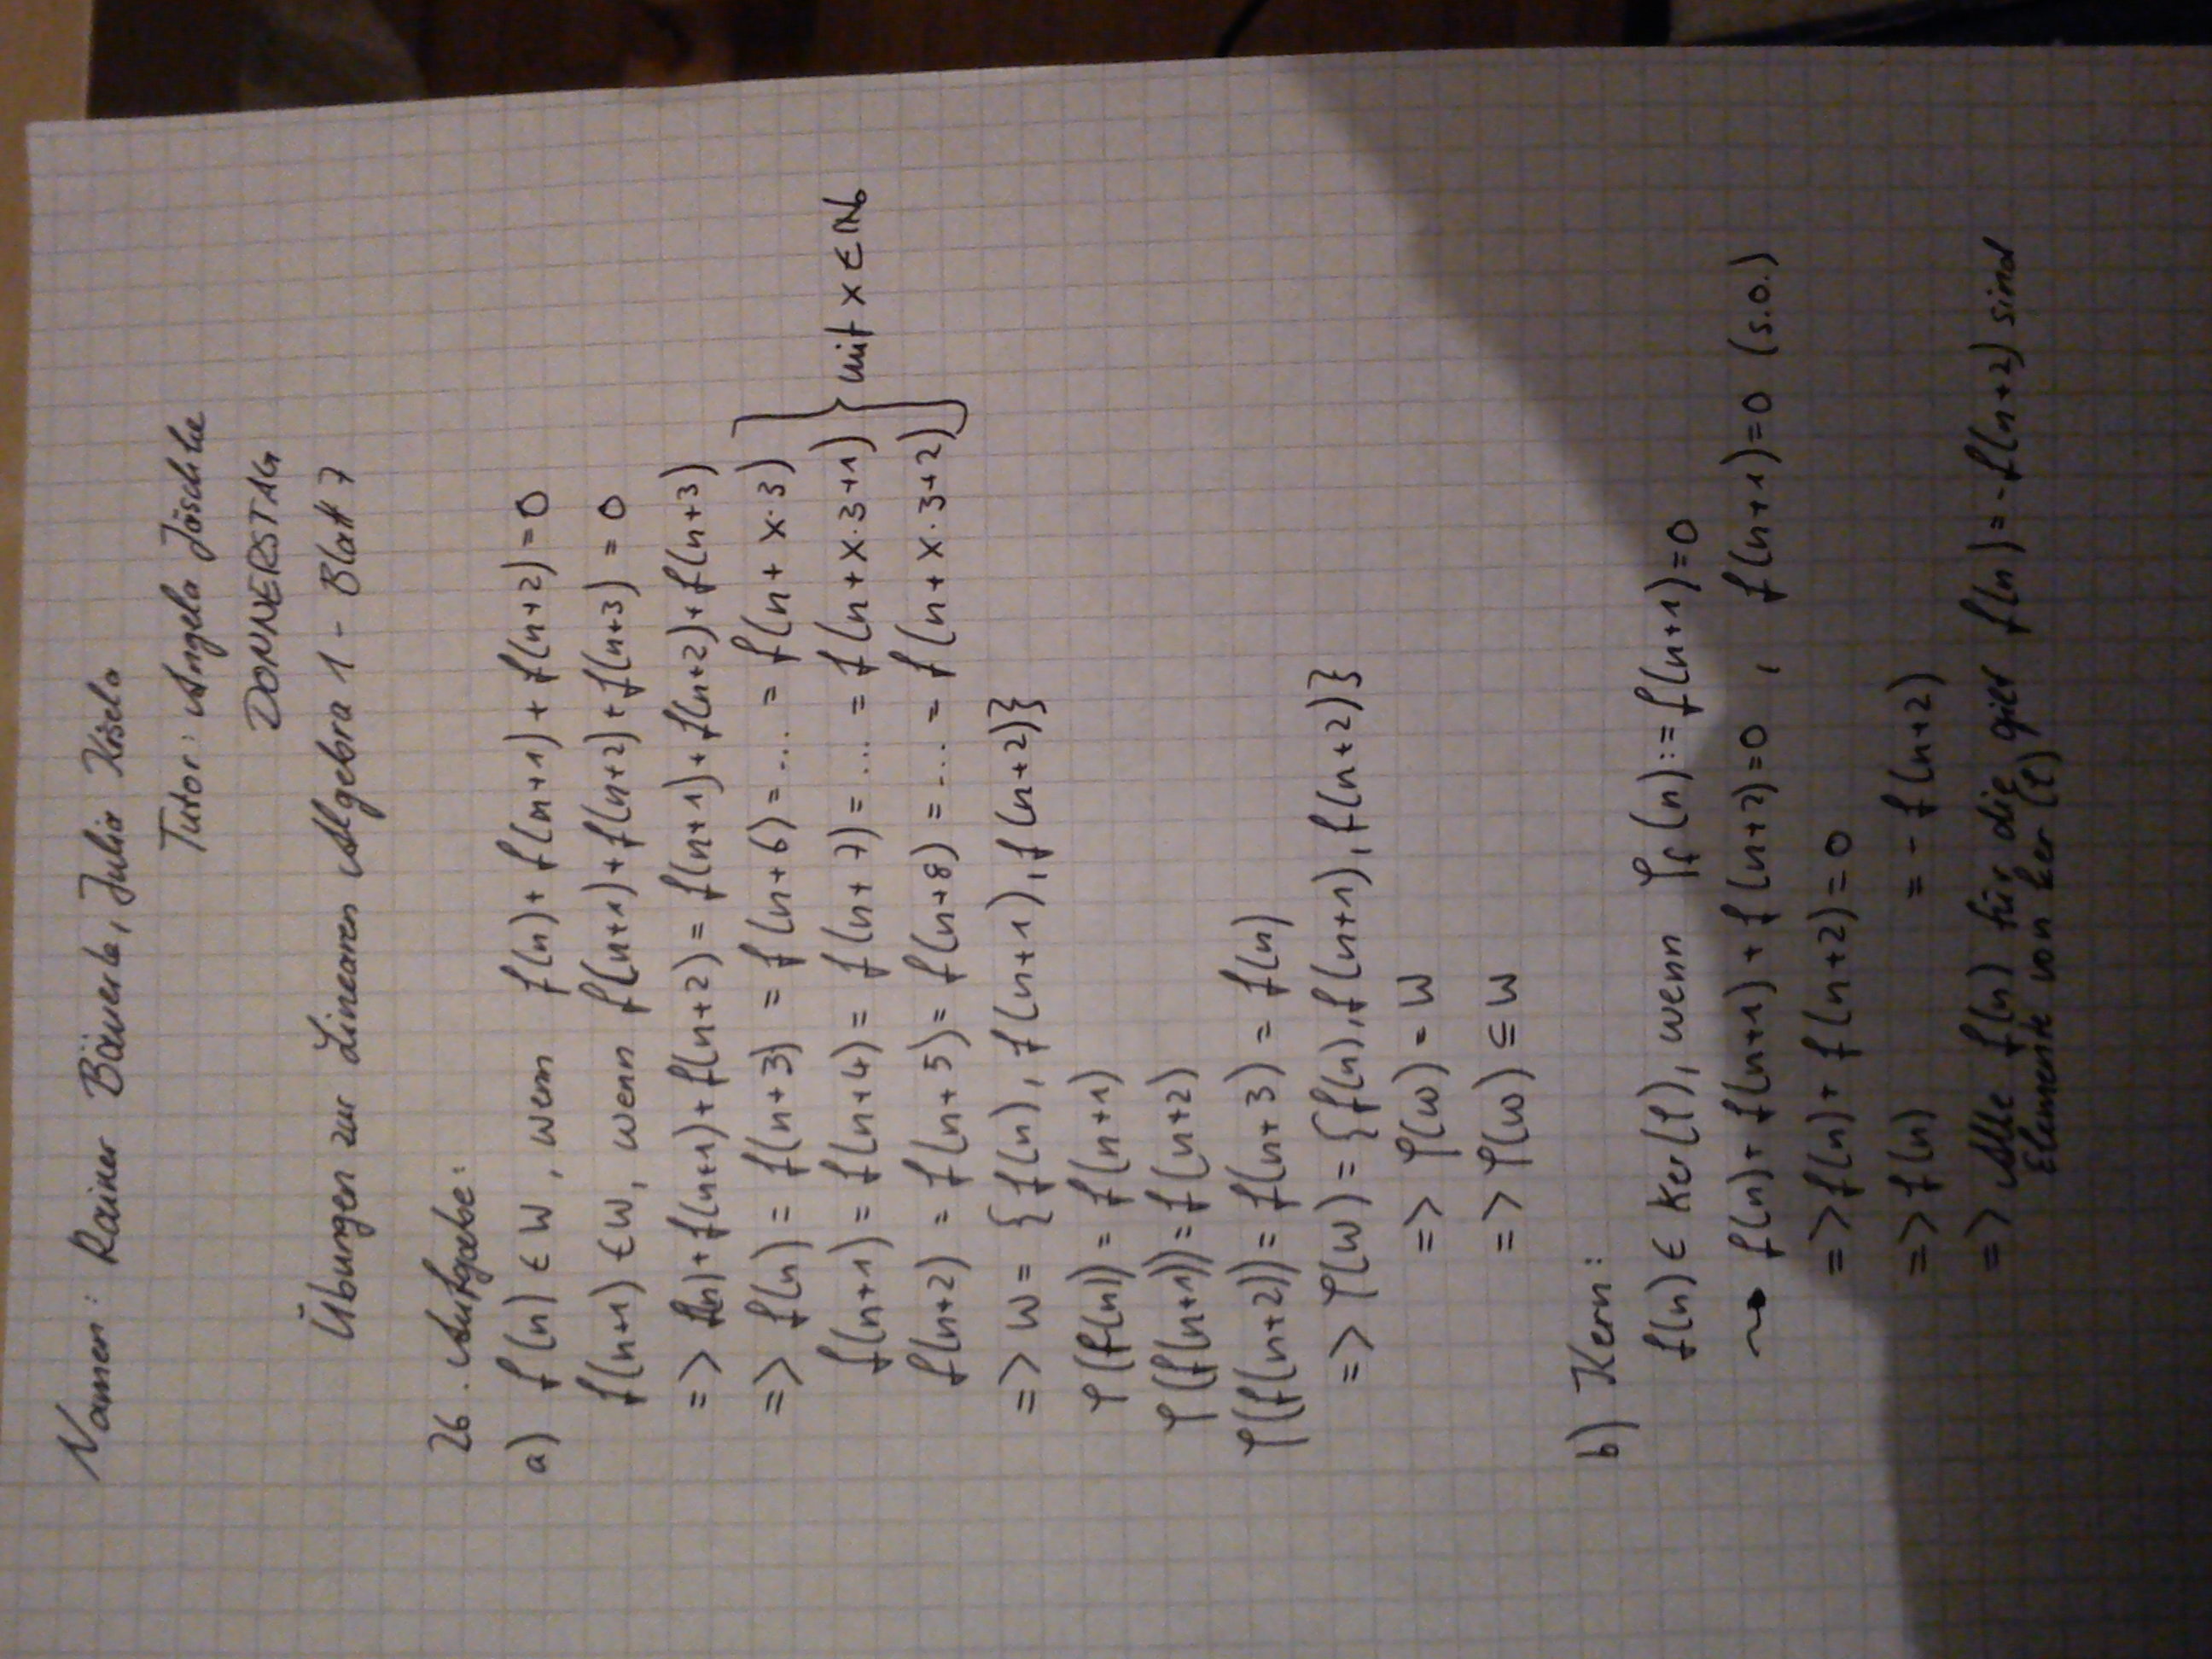 Namen: Rainer Bäuerle, Julia Kisela
Tutor: Angela Jäschke
DONNERSTAG
Übungen zur Linearen Algebra 1 - Blatt 7
26. Aufgabe:
a) f(n) ∈ W, wenn f(n) + f(n+1) + f(n+2) = 0
f(n+1) ∈ W, wenn f(n+1) + f(n+2) + f(n+3) = 0
=> f(n) + f(n+1) + f(n+2) = f(n+1) + f(n+2) + f(n+3)
=> f(n) = f(n+3) = f(n+6) = ... = f(n+x·3)
f(n+1) = f(n+4) = f(n+7) = ... = f(n+x·3+1) } mit x ∈ ℕ₀
f(n+2) = f(n+5) = f(n+8) = ... = f(n+x·3+2)
=> W = {f(n), f(n+1), f(n+2)}
φ(f(n)) = f(n+1)
φ(f(n+1)) = f(n+2)
φ(f(n+2)) = f(n+3) = f(n)
=> φ(W) = {f(n), f(n+1), f(n+2)}
=> φ(W) = W
=> φ(W) ⊆ W
b) Kern:
f(n) ∈ Ker(φ), wenn φ_f(n) := f(n+1) = 0
⇝ f(n) + f(n+1) + f(n+2) = 0 , f(n+1) = 0 (s.o.)
=> f(n) + f(n+2) = 0
=> f(n) = - f(n+2)
=> Alle f(n) für die gilt f(n) = - f(n+2) sind
Elemente von ker(φ)